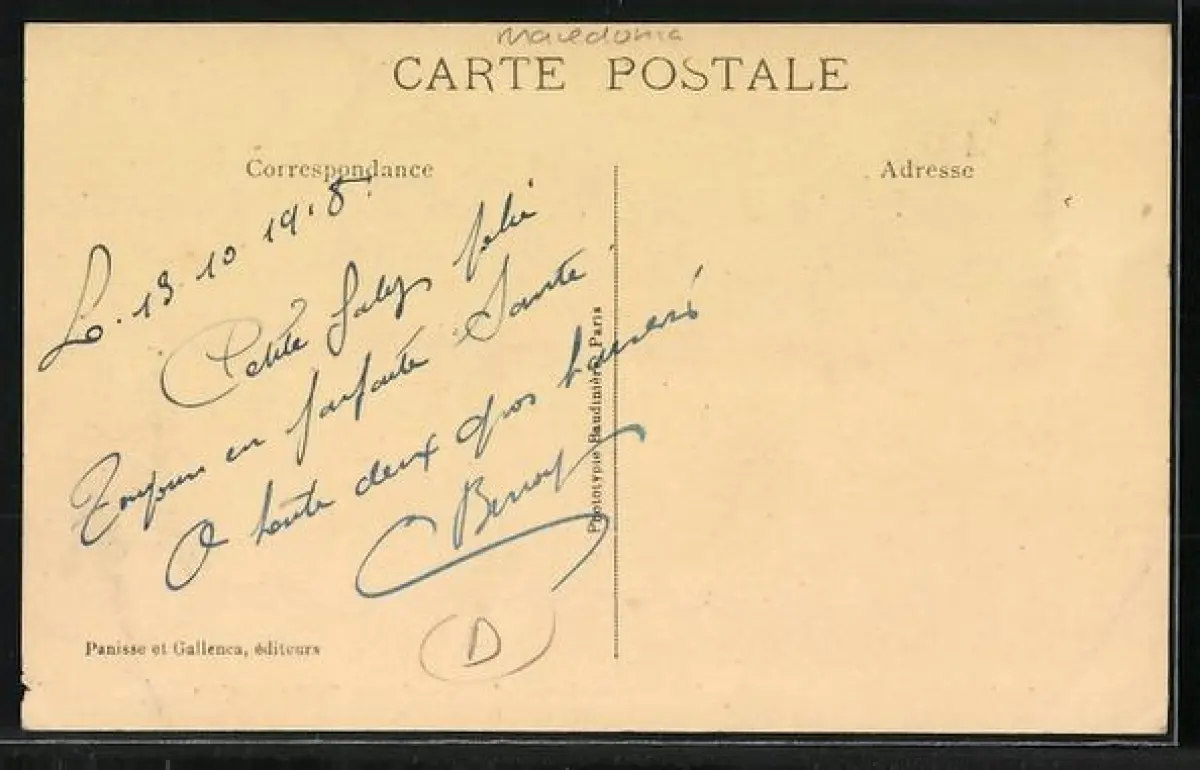 Macedonia
CARTE POSTALE
Correspondance
Adresse
Le 13 10 1918.
Petite jolie
Toujours en parfaite Santé
A toute deux gros baisers
Phototypie Baudinière, Paris
Panisse et Gallenca, éditeurs
D